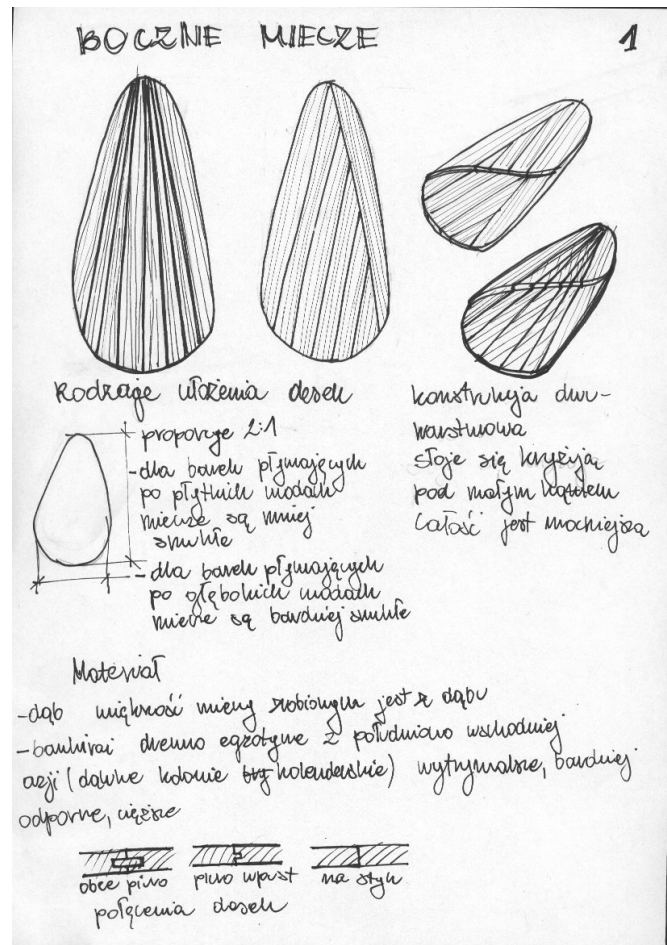 BOCZNE MIECZE
1
Rodzaje ułożenia desek
konstrukcja dwu-
warstwowa
słoje się krzyżują
pod małym kątem
całość jest mocniejsza
proporcje 2:1
-dla barek pływających
po płytkich wodach
miecze są mniej
smukłe
-dla barek pływających
po głębokich wodach
miecze są bardziej smukłe
Materiał
-dąb większość mieczy robionych jest z dębu
-bankirai drewno egzotyczne z południowo wschodniej
azji (dawne kolonie holenderskie) wytrzymalsze, bardziej
odporne, cięższe
obce pióro
pióro wpust
na styk
połączenia desek